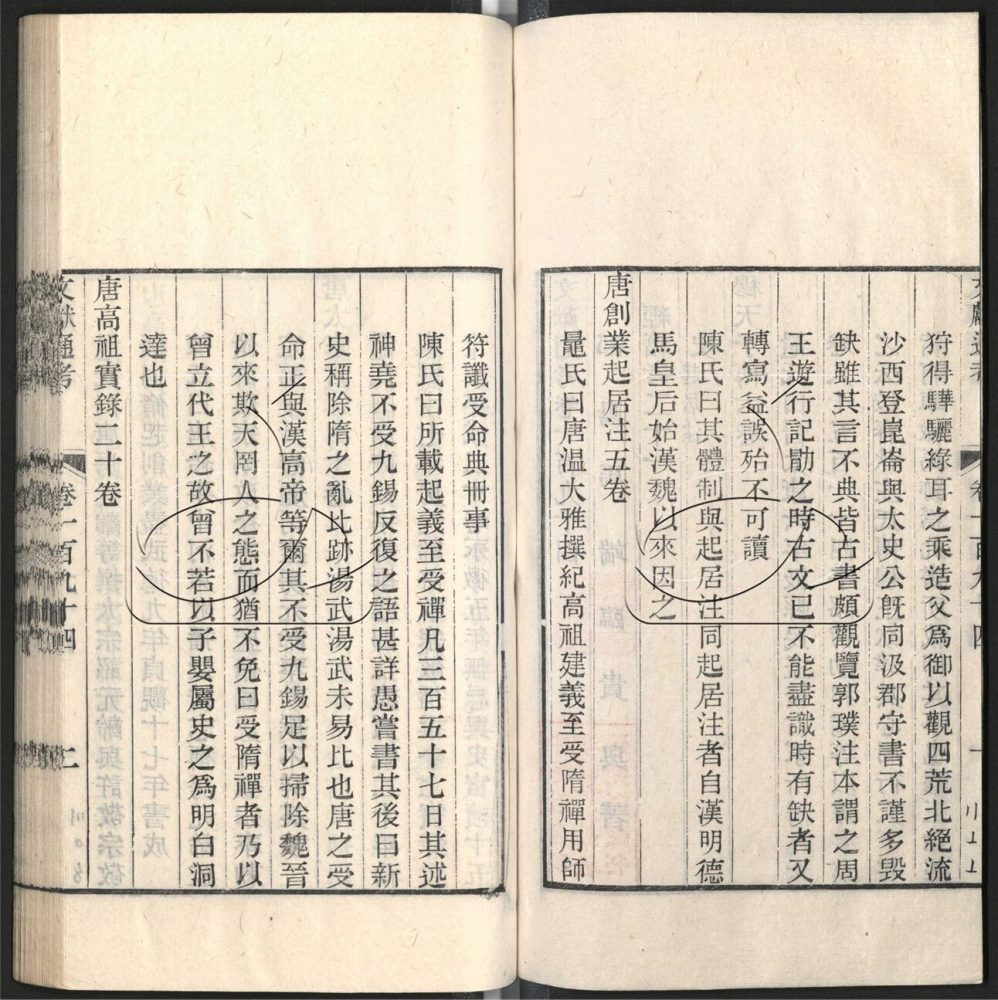 狩得驊驪綠耳之乘造父爲御以觀四荒北絕流
沙西登崑崙與太史公旣同汲郡守書不謹多毀
缺雖其言不典皆古書頗觀覽郭璞注本謂之周
王遊行記勖之時古文已不能盡識時有缺者又
轉寫益誤殆不可讀
陳氏曰其體制與起居注同起居注者自漢明德
馬皇后始漢魏以來因之
唐創業起居注五卷
鼂氏曰唐温大雅撰紀高祖建義至受隋禪用師
符讖受命典冊事
陳氏曰所載起義至受禪凡三百五十七日其述
神堯不受九錫反復之語甚詳愚嘗書其後曰新
史稱除隋之亂比跡湯武湯武未易比也唐之受
命正與漢高帝等爾其不受九錫足以掃除魏晉
以來欺天罔人之態而猶不免曰受隋禪者乃以
曾立代王之故曾不若以子嬰屬吏之爲明白洞
達也
唐高祖實錄二十卷
文獻通考 卷一百九十四 二